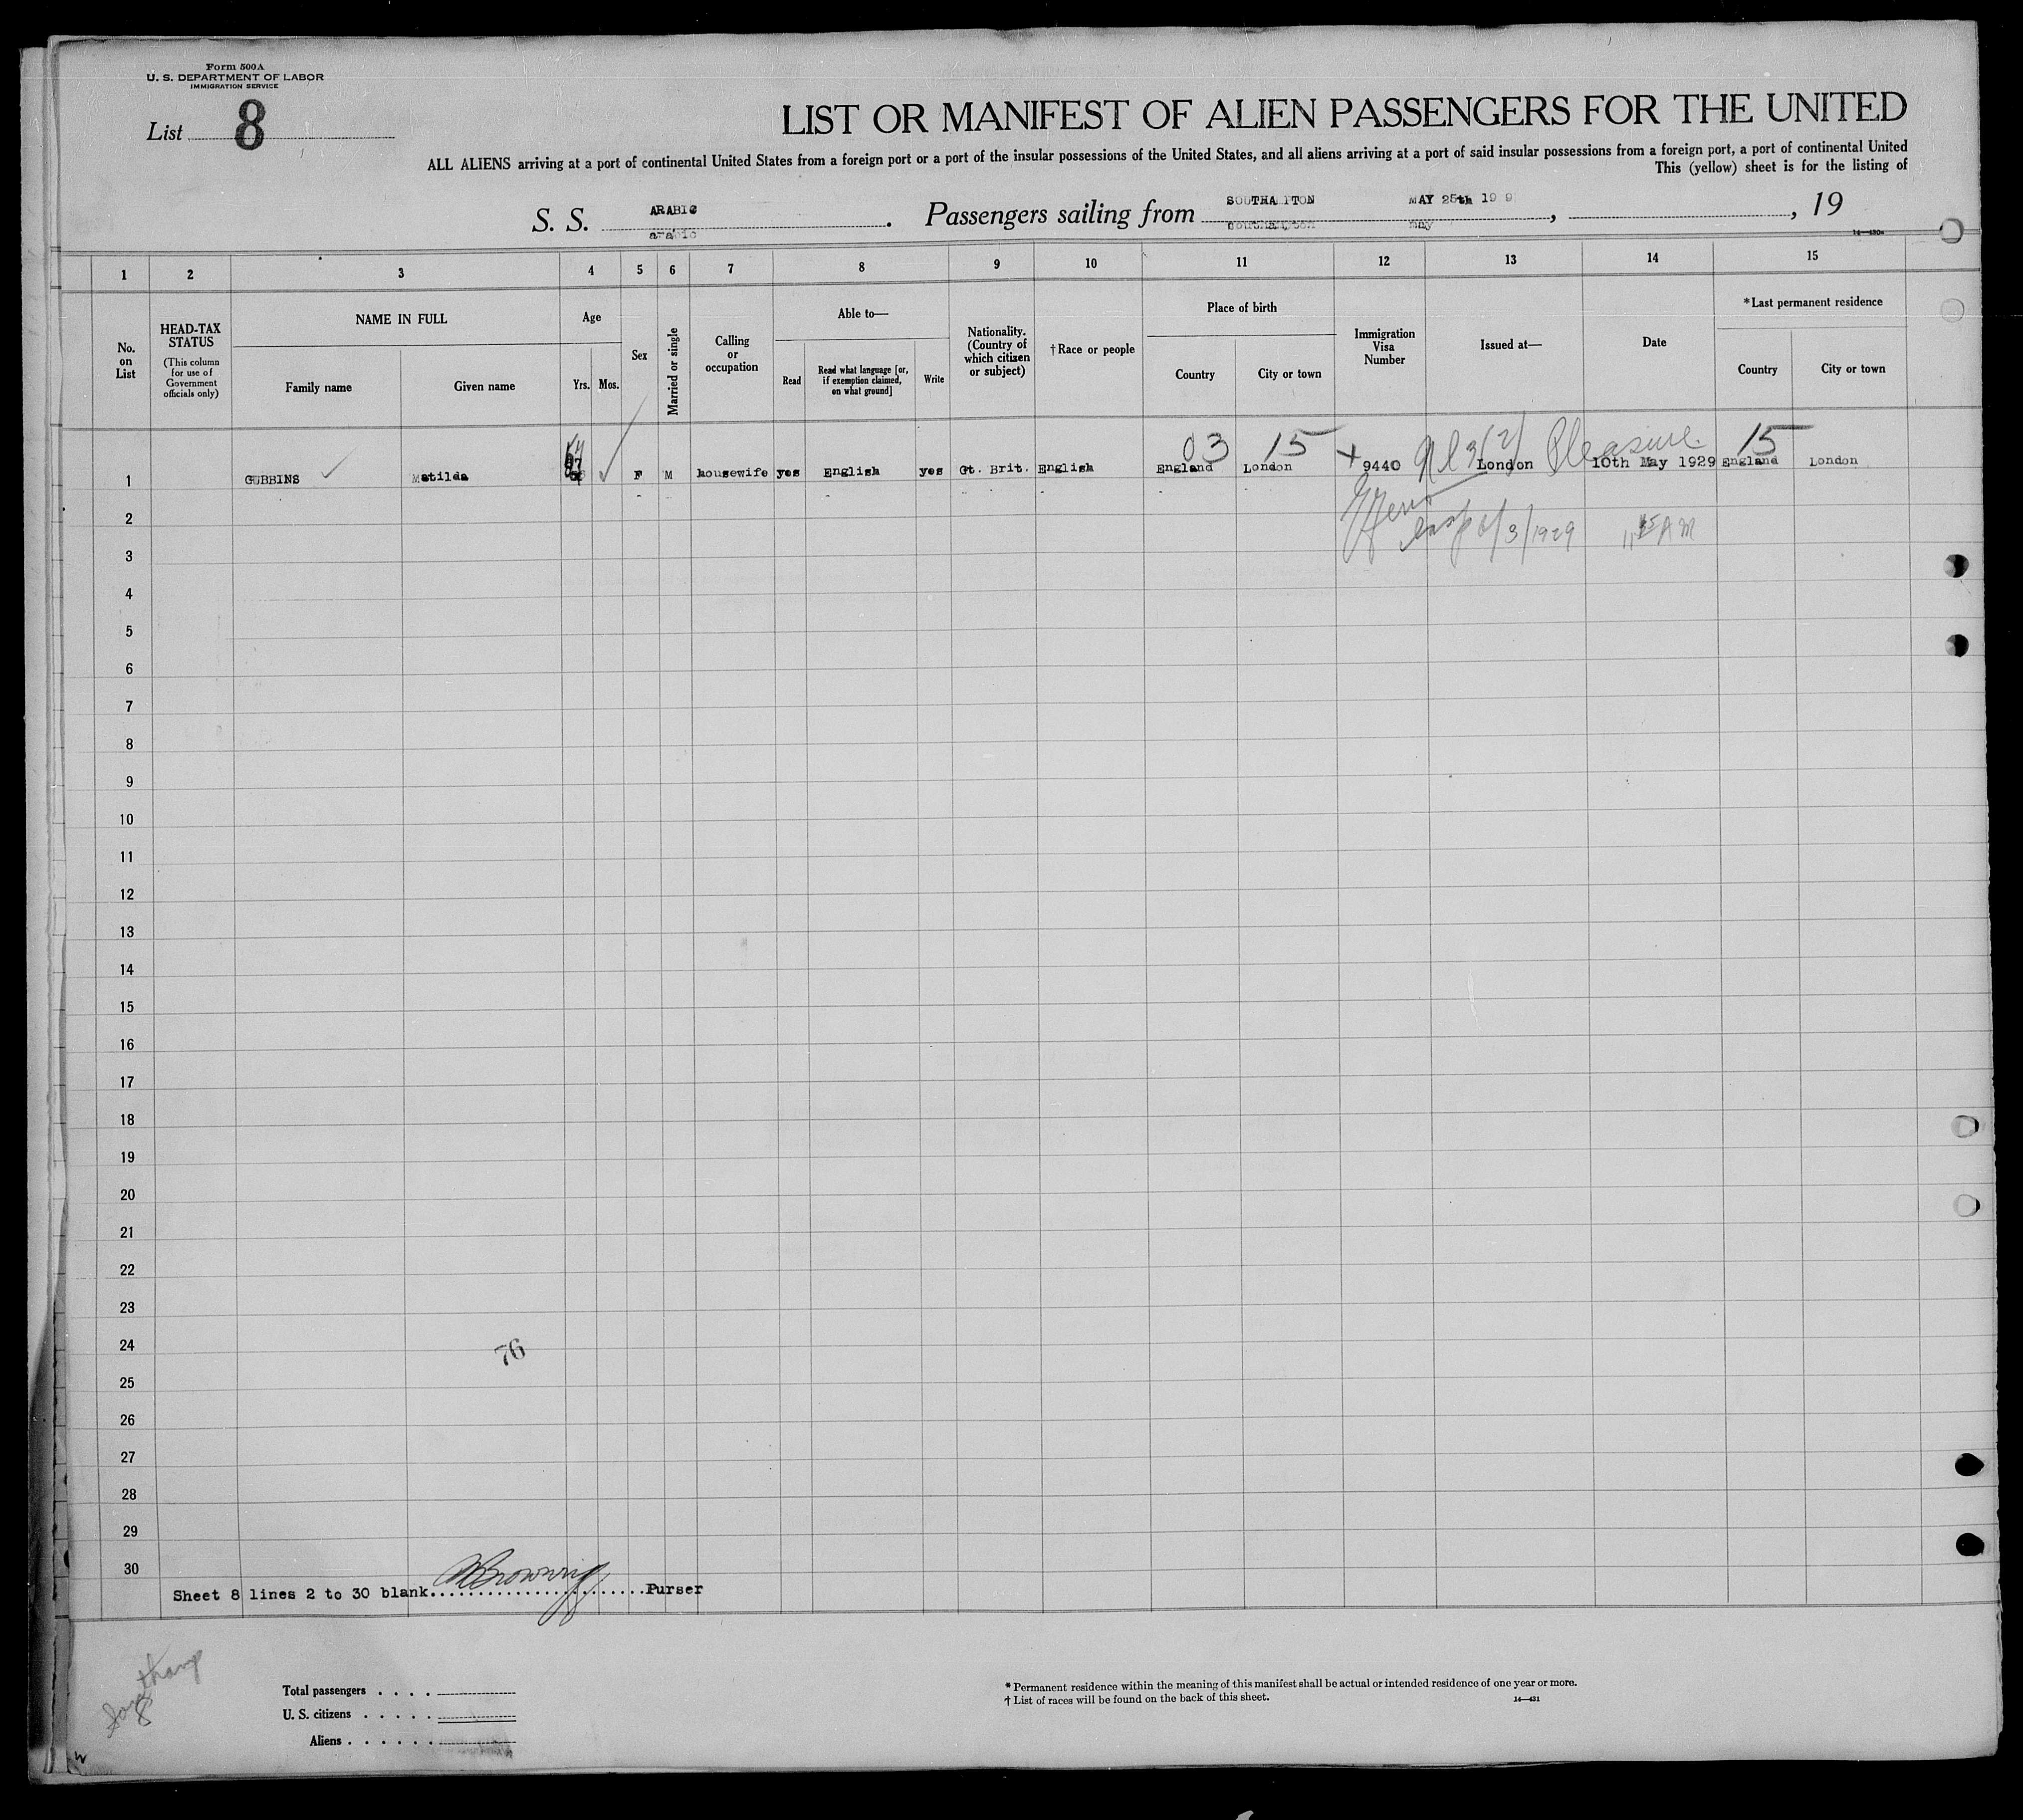 Form 500A
U. S. DEPARTMENT OF LABOR
IMMIGRATION SERVICE
List 8
LIST OR MANIFEST OF ALIEN PASSENGERS FOR THE UNITED
ALL ALIENS arriving at a port of continental United States from a foreign port or a port of the insular possessions of the United States, and all aliens arriving at a port of said insular possessions from a foreign port, a port of continental United
This (yellow) sheet is for the listing of
S. S. ARABIC. Passengers sailing from MAY 25th 19 , , 19
14—430a
1 2 3 4 5 6 7 8 9 10 11 12 13 14 15
No. on List
HEAD-TAX STATUS
(This column for use of Government officials only)
NAME IN FULL
Family name
Given name
Age
Yrs.
Mos.
Sex
Married or single
Calling or occupation
Able to—
Read
Read what language [or, if exemption claimed, on what ground]
Write
Nationality. (Country of which citizen or subject)
†Race or people
Place of birth
Country
City or town
Immigration Visa Number
Issued at—
Date
*Last permanent residence
Country
City or town
03 15 + 3(2) Pleasure 15
1 GUBBINS Matilda F M housewife yes English yes Gt. Brit. English England London 9440 London 10th May 1929 England London
2
3/1929 AM
3
4
5
6
7
8
9
10
11
12
13
14
15
16
17
18
19
20
21
22
23
24
76
25
26
27
28
29
30
Sheet 8 lines 2 to 30 blank Browning Purser
8
Total passengers . . . .
U. S. citizens . . . . .
Aliens . . . . . .
* Permanent residence within the meaning of this manifest shall be actual or intended residence of one year or more.
† List of races will be found on the back of this sheet.
14—431